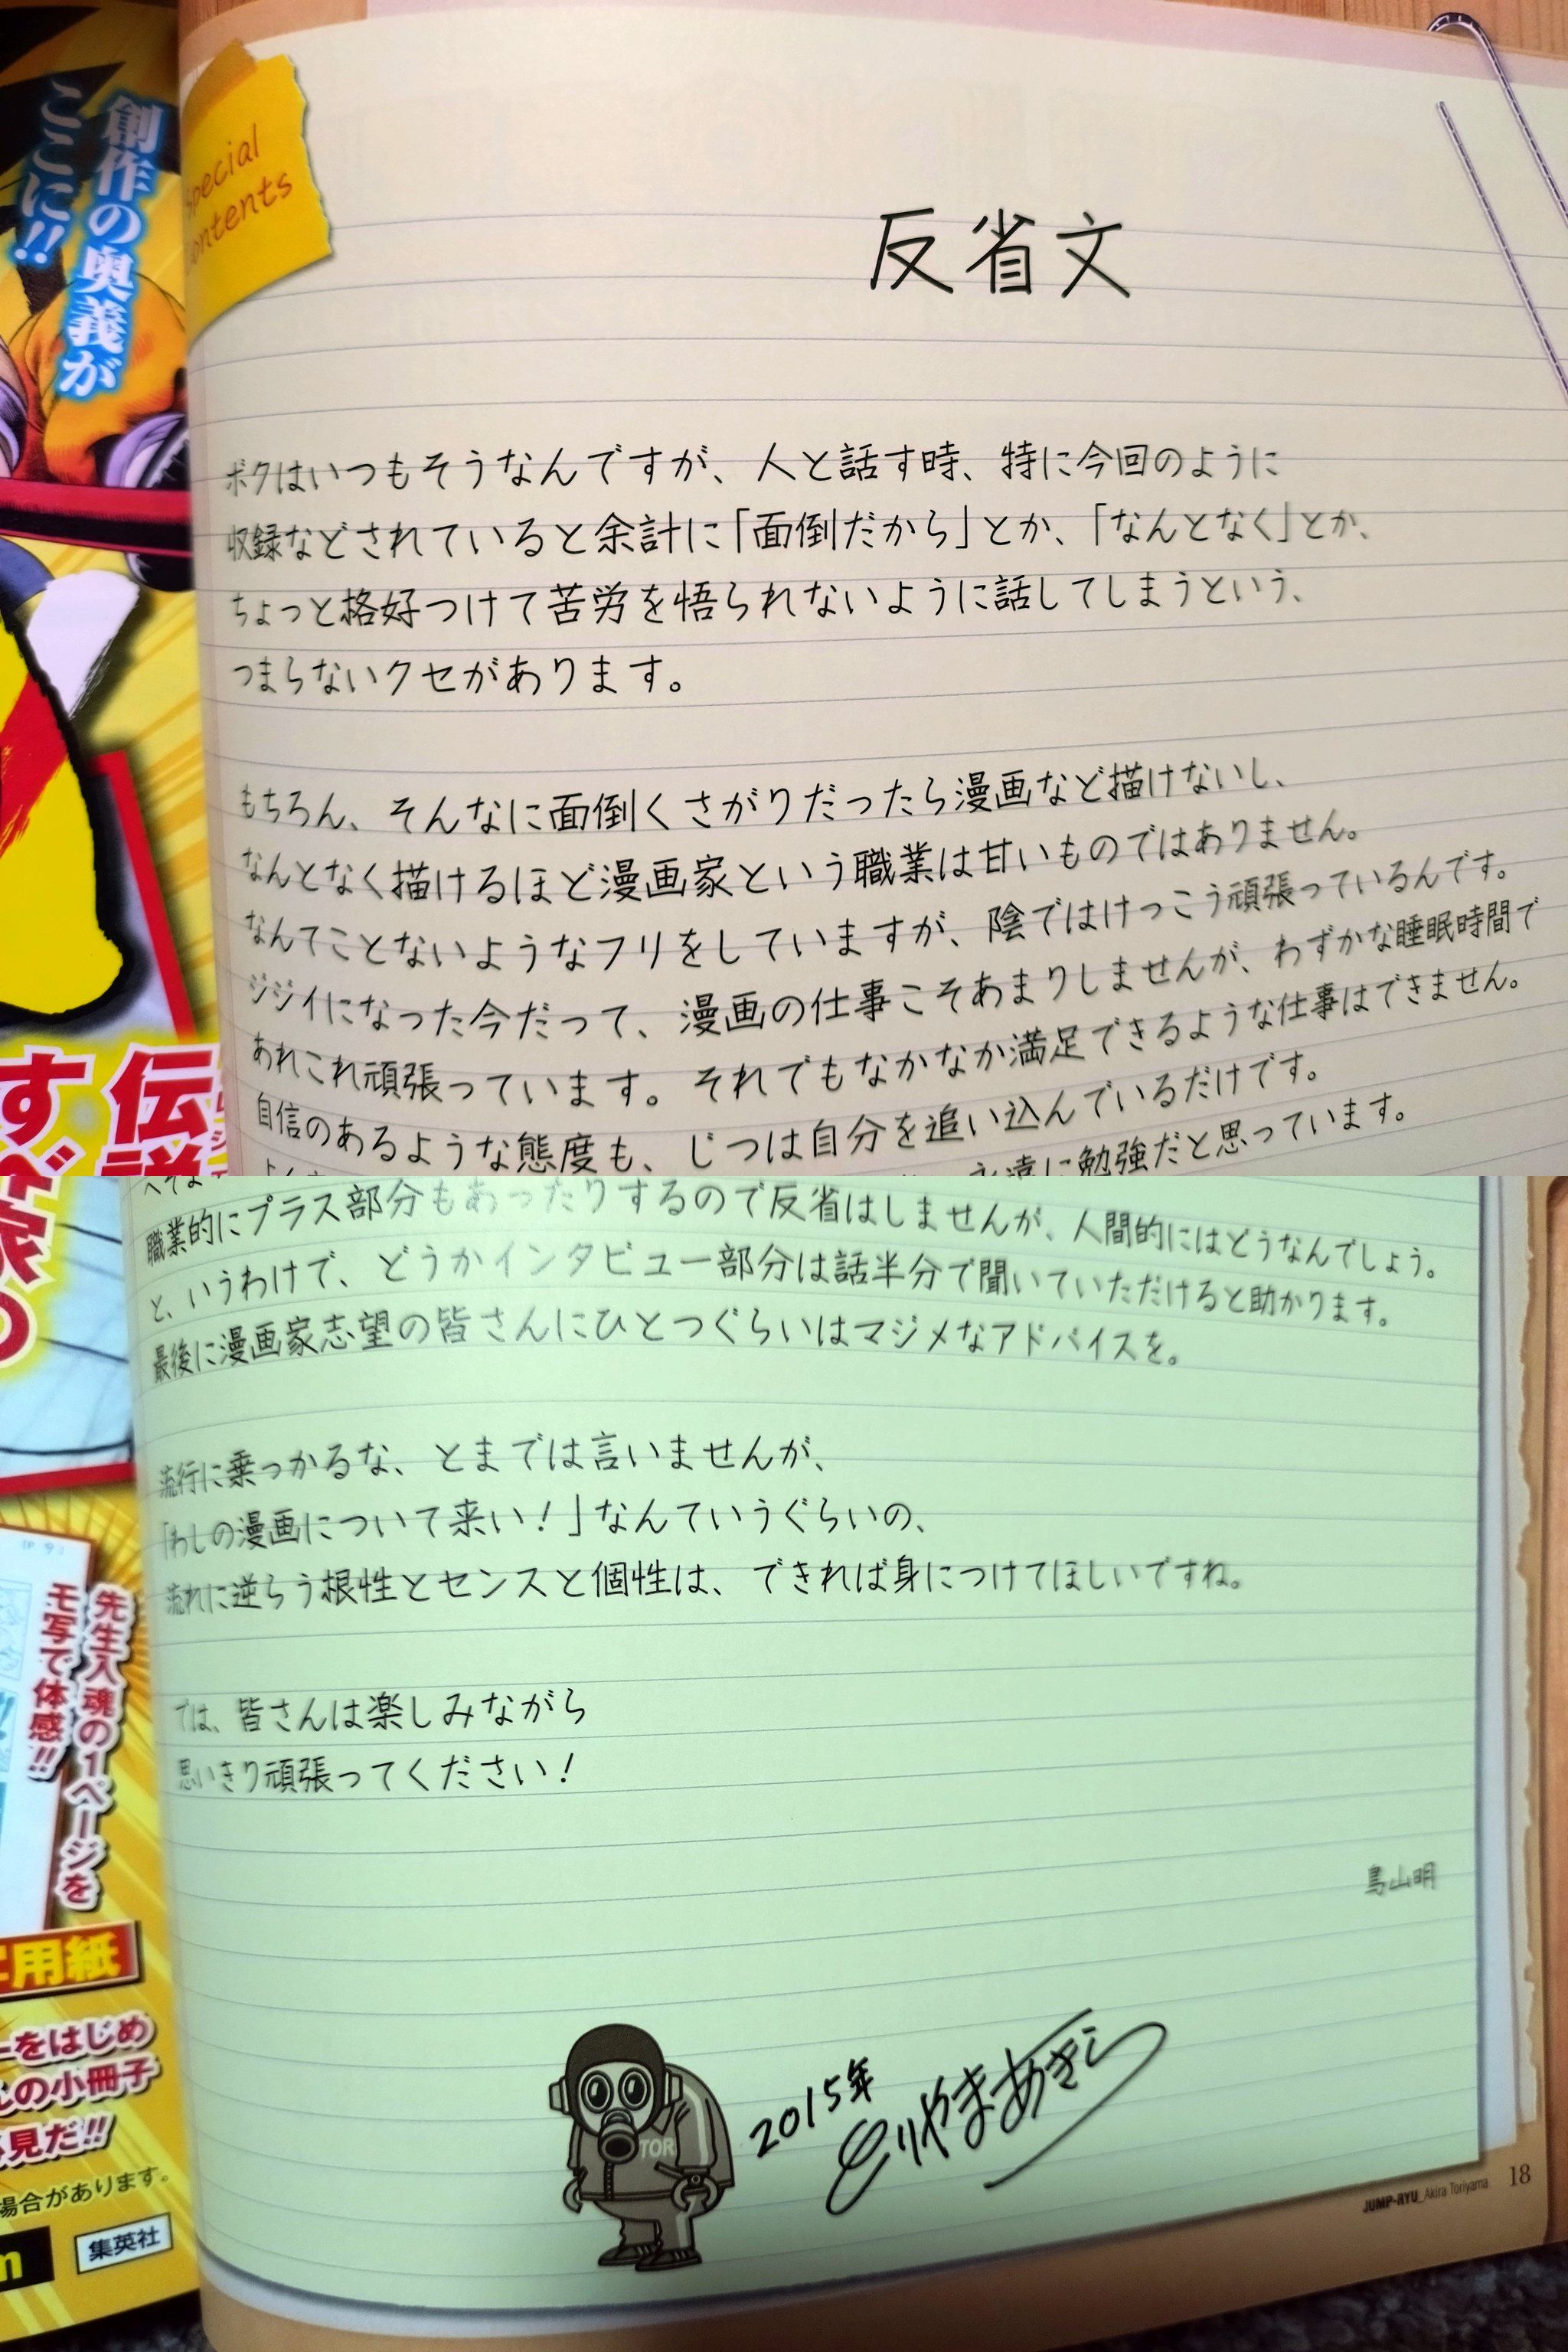 創作の奥義が
ここに!!
Special
Contents
反省文
ボクはいつもそうなんですが、人と話す時、特に今回のように
収録などされていると余計に「面倒だから」とか、「なんとなく」とか、
ちょっと格好つけて苦労を悟られないように話してしまうという、
つまらないクセがあります。
もちろん、そんなに面倒くさがりだったら漫画など描けないし、
なんとなく描けるほど漫画家という職業は甘いものではありません。
なんてことないようなフリをしていますが、陰ではけっこう頑張っているんです。
ジジイになった今だって、漫画の仕事こそあまりしませんが、わずかな睡眠時間で
あれこれ頑張っています。それでもなかなか満足できるような仕事はできません。
自信のあるような態度も、じつは自分を追い込んでいるだけです。
永遠に勉強だと思っています。
職業的にプラス部分もあったりするので反省はしませんが、人間的にはどうなんでしょう。
と、いうわけで、どうかインタビュー部分は話半分で聞いていただけると助かります。
最後に漫画家志望の皆さんにひとつぐらいはマジメなアドバイスを。
流行に乗っかるな、とまでは言いませんが、
「わしの漫画について来い！」なんていうぐらいの、
流れに逆らう根性とセンスと個性は、できれば身につけてほしいですね。
では、皆さんは楽しみながら
思いきり頑張ってください！
鳥山明
TOR
2015年
とりやまあきら
JUMP-RYU_Akira Toriyama 18
伝
す
先生入魂の1ページを
モ写で体感!!
用紙
ーをはじめ
の小冊子
見だ!!
場合があります。
集英社